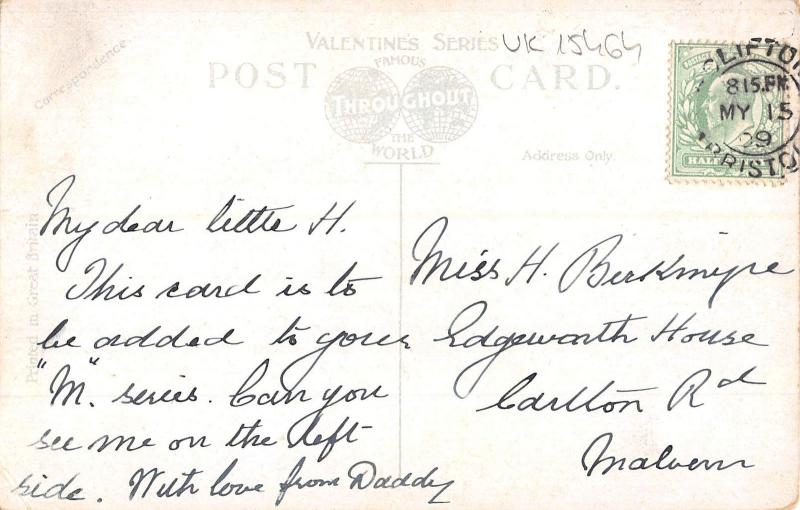 VALENTINE'S SERIES
UK 15464
FAMOUS
POST CARD.
THROUGHOUT
THE
WORLD
Correspondence
Address Only.
Printed in Great Britain
CLIFTON
815.PM
MY 15
09
BRISTOL
HALF
My dear little H.
This card is to
be added to your
"M". series. Can you
see me on the left
side. With love from Daddy
Miss H. Birkmyre
Edgeworth House
Carlton Rd
Malvern